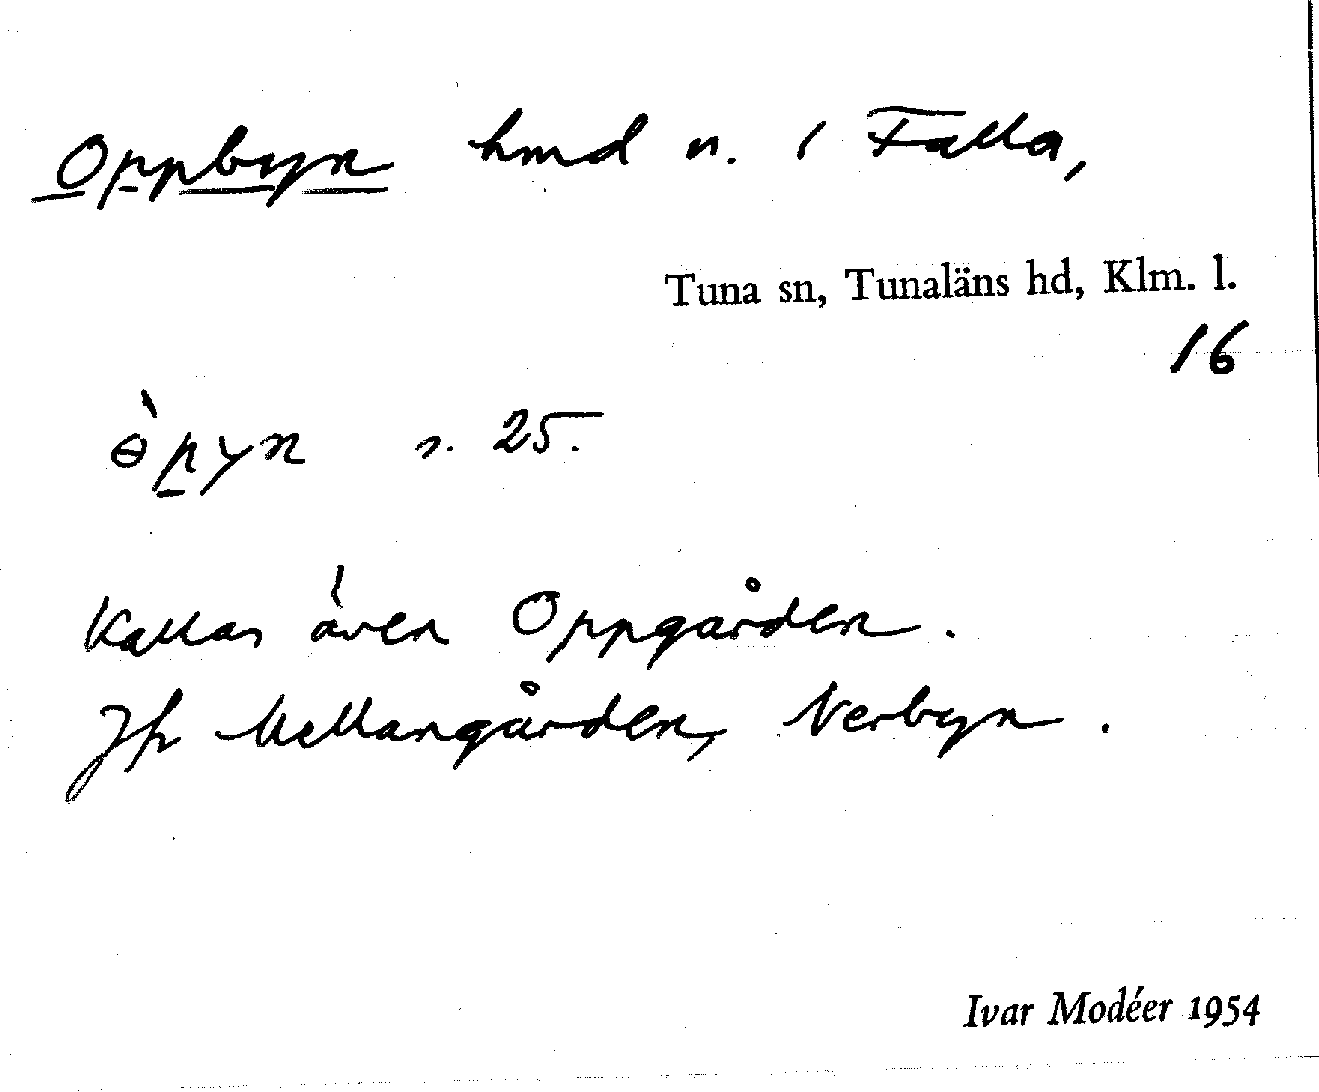 Oppbyn hmd n. i Falla,
Tuna sn, Tunaläns hd, Klm. l.
16
ɵ̀pyn s. 25.
Kallas även Oppgården.
Jfr Mellangården, Nerbyn.
Ivar Modéer 1954